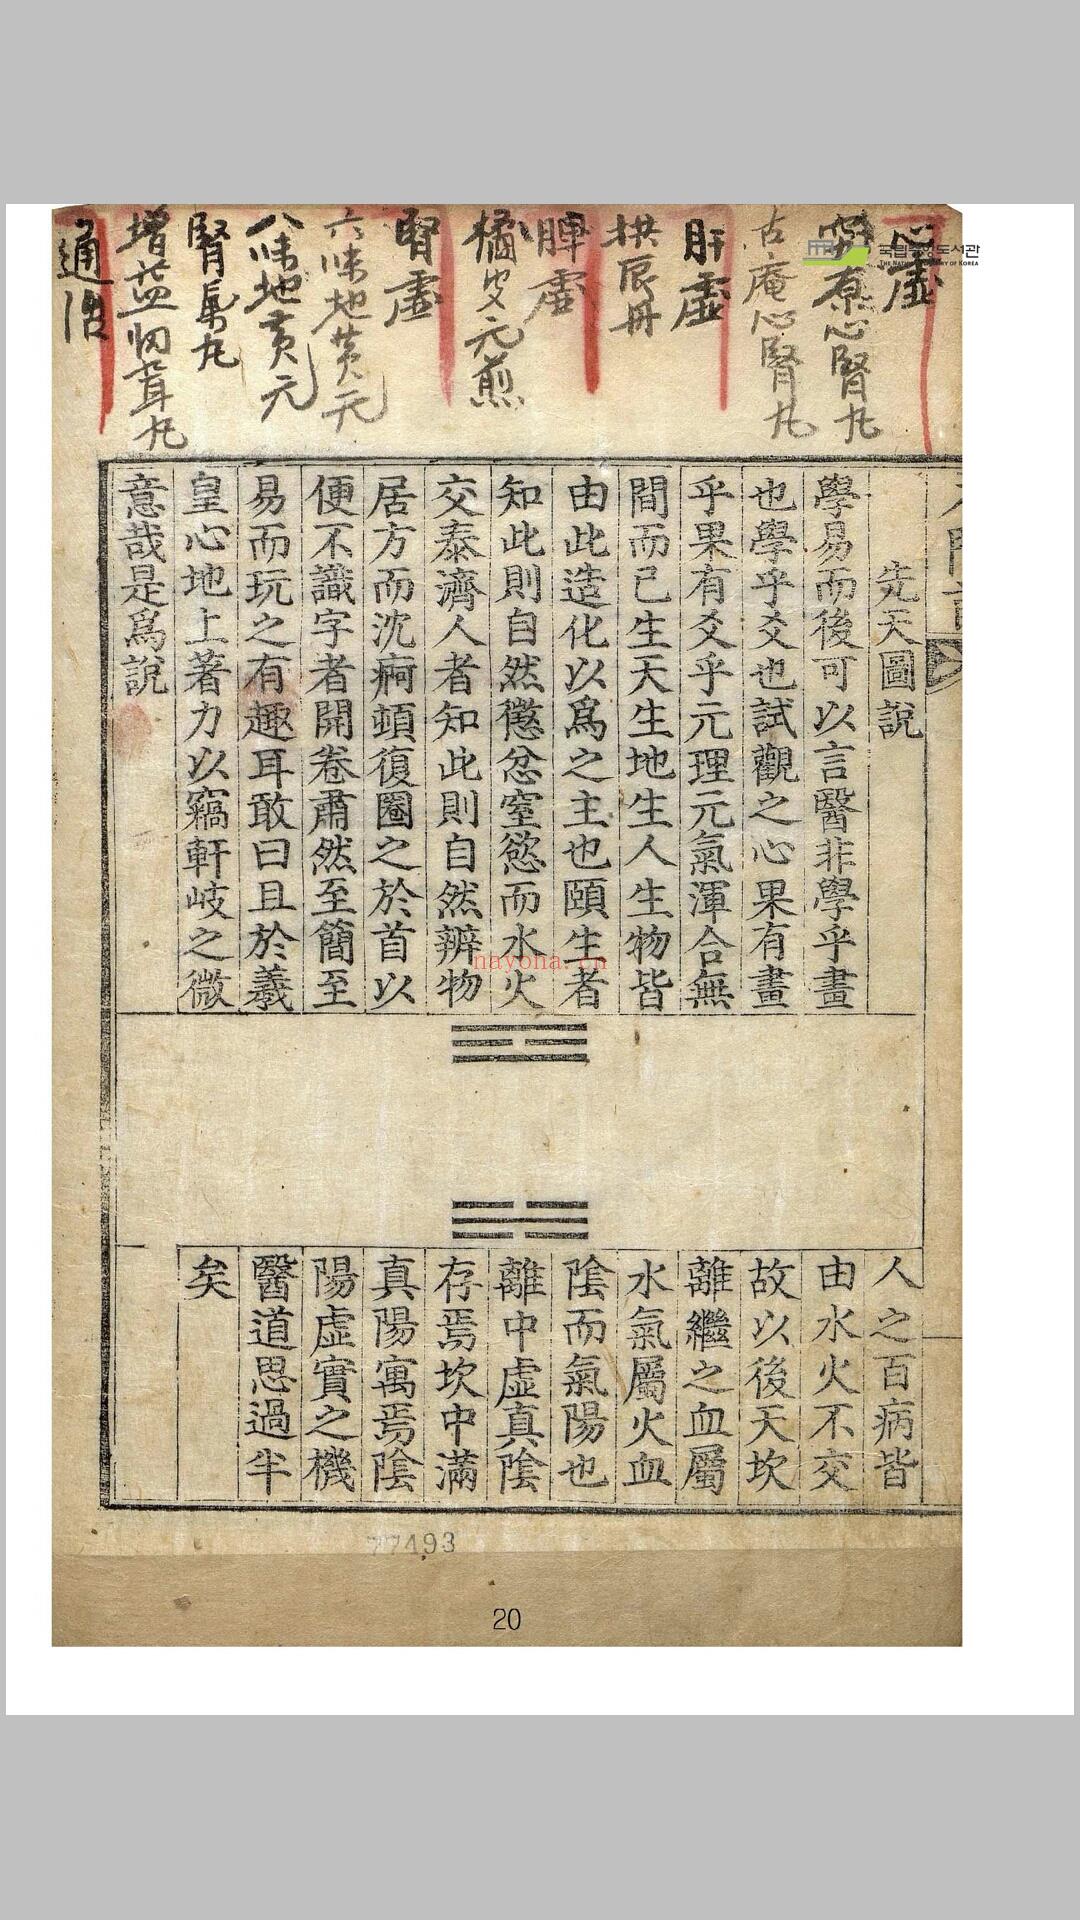 心虛
究原心腎丸
古庵心腎丸
肝虛
拱辰丹
脾虛
橘皮元煎
腎虛
六味地黃元
八味地黃元
腎氣丸
增益㓛茸丸
通治
국립중앙도서관
THE NATIONAL LIBRARY OF KOREA
先天圖說
學易而後可以言醫非學乎畫
也學乎爻也試觀之心果有畫
乎果有爻乎元理元氣渾合無
間而已生天生地生人生物皆
由此造化以爲之主也頤生者
知此則自然懲忿窒慾而水火
交泰濟人者知此則自然辨物
居方而沈痾頓復圈之於首以
便不識字者開卷肅然至簡至
易而玩之有趣耳敢曰且於羲
皇心地上著力以竊軒岐之微
意哉是爲說
人之百病皆
由水火不交
故以後天坎
離繼之血屬
水氣屬火血
陰而氣陽也
離中虛真陰
存焉坎中滿
真陽寓焉陰
陽虛實之機
醫道思過半
矣
nayona.cn
77493
20